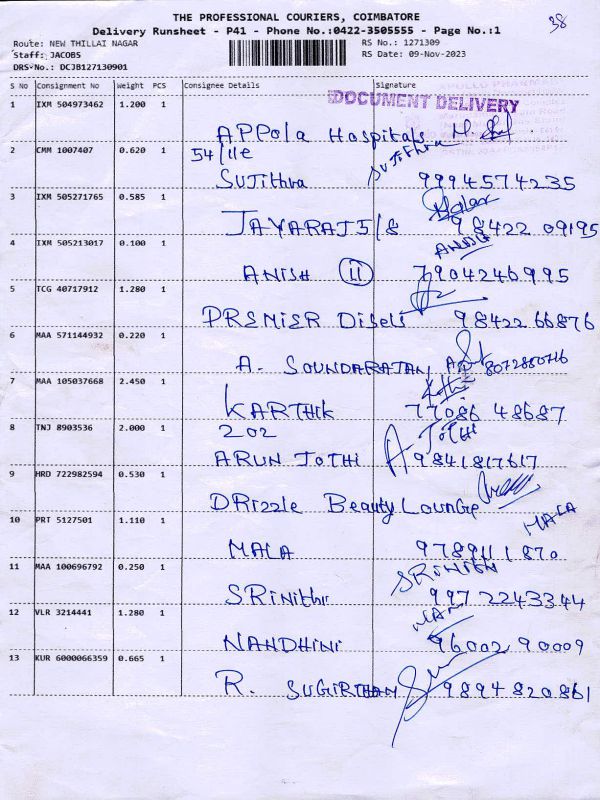 THE PROFESSIONAL COURIERS, COIMBATORE
38
Delivery Runsheet - P41 - Phone No.:0422-3505555 - Page No.:1
Route: NEW THILLAI NAGAR
RS No.: 1271309
Staff: JACOBS
RS Date: 09-Nov-2023
DRS No.: DCJB127130901
S No Consignment No Weight PCS Consignee Details Signature
DOCUMENT DELIVERY
1 IXM 504973462 1.200 1
Appola Hospitals
2 CMM 1007407 0.620 1 54/11e Sujithra
Sujithra 9994574235
3 IXM 505271765 0.585 1
JAYARAJ 5/8 98422 09195
4 IXM 505213017 0.100 1 ANISH
ANISH 11 7904246995
5 TCG 40717912 1.280 1
PREMIER Disels 98422 66876
6 MAA 571144932 0.220 1
A. SOUNDARAJAN, 8072880716
7 MAA 105037668 2.450 1
KARTHIK 77086 48687
8 TNJ 8903536 2.000 1 202 JOTHI
ARUN JOTHI 9841817617
9 HRD 722982594 0.530 1
DRizzle Beauty LounGe
10 PRT 5127501 1.110 1 MALA
MALA 9789111870
11 MAA 100696792 0.250 1 SRINITHI
SRiNithi 997 2243344
12 VLR 3214441 1.280 1
NANDHINI 96002 90009
13 KUR 6000066359 0.665 1
R. SUGIRTHAN 9894820861